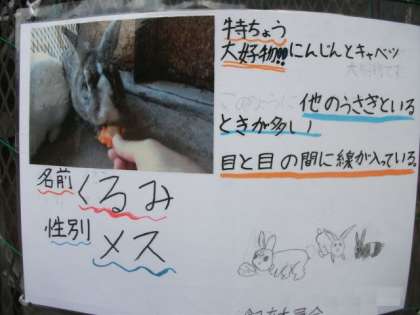 特ちょう
大好物!!にんじんとキャベツ
このように他のうさぎといる
ときが多い
目と目の間に線が入っている。
名前 くるみ
性別 メス